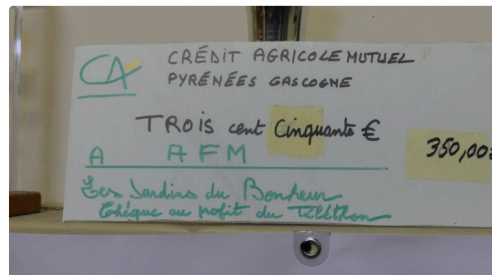 CA
CRÉDIT AGRICOLE MUTUEL
PYRÉNÉES GASCOGNE
TROIS cent Cinquante €
350,00€
A AFM
Les Jardins du Bonheur
Chèque au profit du Téléthon